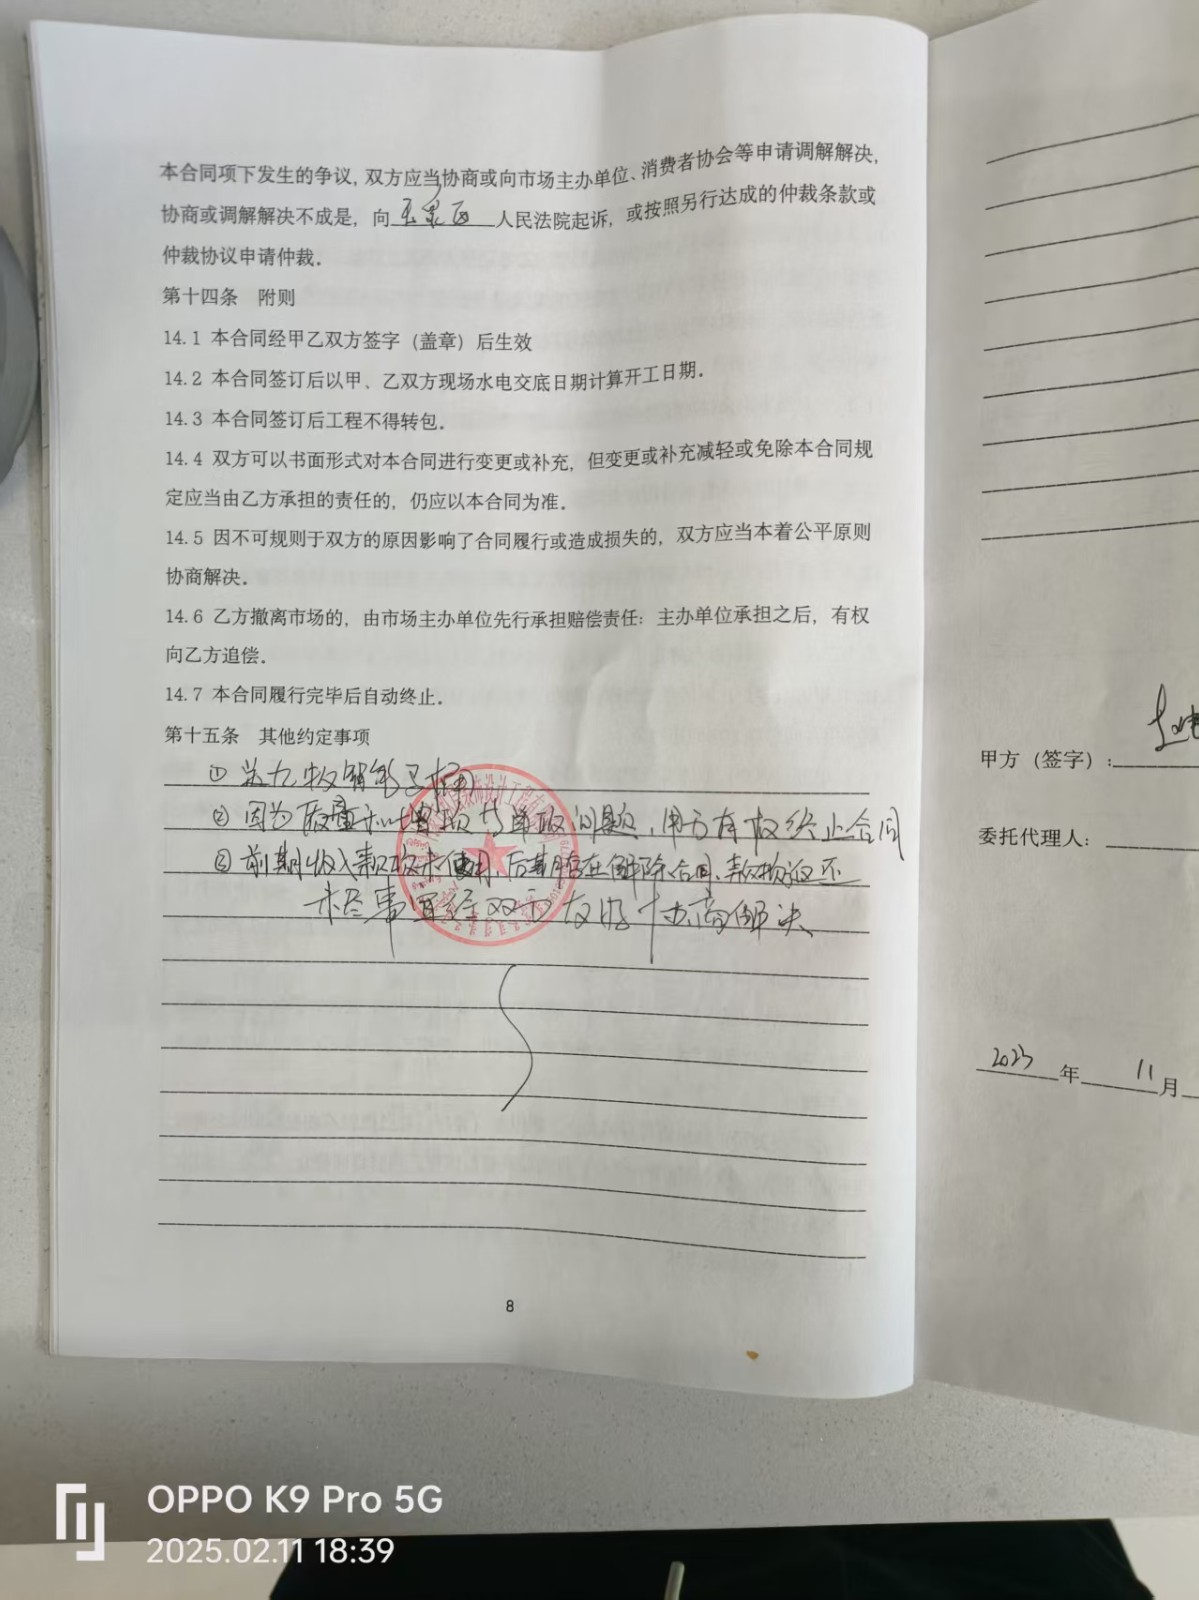 本合同项下发生的争议，双方应当协商或向市场主办单位、消费者协会等申请调解解决，
协商或调解解决不成是，向玉泉区人民法院起诉，或按照另行达成的仲裁条款或
仲裁协议申请仲裁。
第十四条 附则
14.1 本合同经甲乙双方签字（盖章）后生效
14.2 本合同签订后以甲、乙双方现场水电交底日期计算开工日期。
14.3 本合同签订后工程不得转包。
14.4 双方可以书面形式对本合同进行变更或补充，但变更或补充减轻或免除本合同规
定应当由乙方承担的责任的，仍应以本合同为准。
14.5 因不可规则于双方的原因影响了合同履行或造成损失的，双方应当本着公平原则
协商解决。
14.6 乙方撤离市场的，由市场主办单位先行承担赔偿责任：主办单位承担之后，有权
向乙方追偿。
14.7 本合同履行完毕后自动终止。
第十五条 其他约定事项
①
② 因为 增项与 问题，甲方有权终止合同
③ 前期收 款 未使用，后期 解除合同、款 返还
未尽事宜经双方友好协商解决
8
甲方（签字）：
委托代理人：
2023年11月
OPPO K9 Pro 5G
2025.02.11 18:39